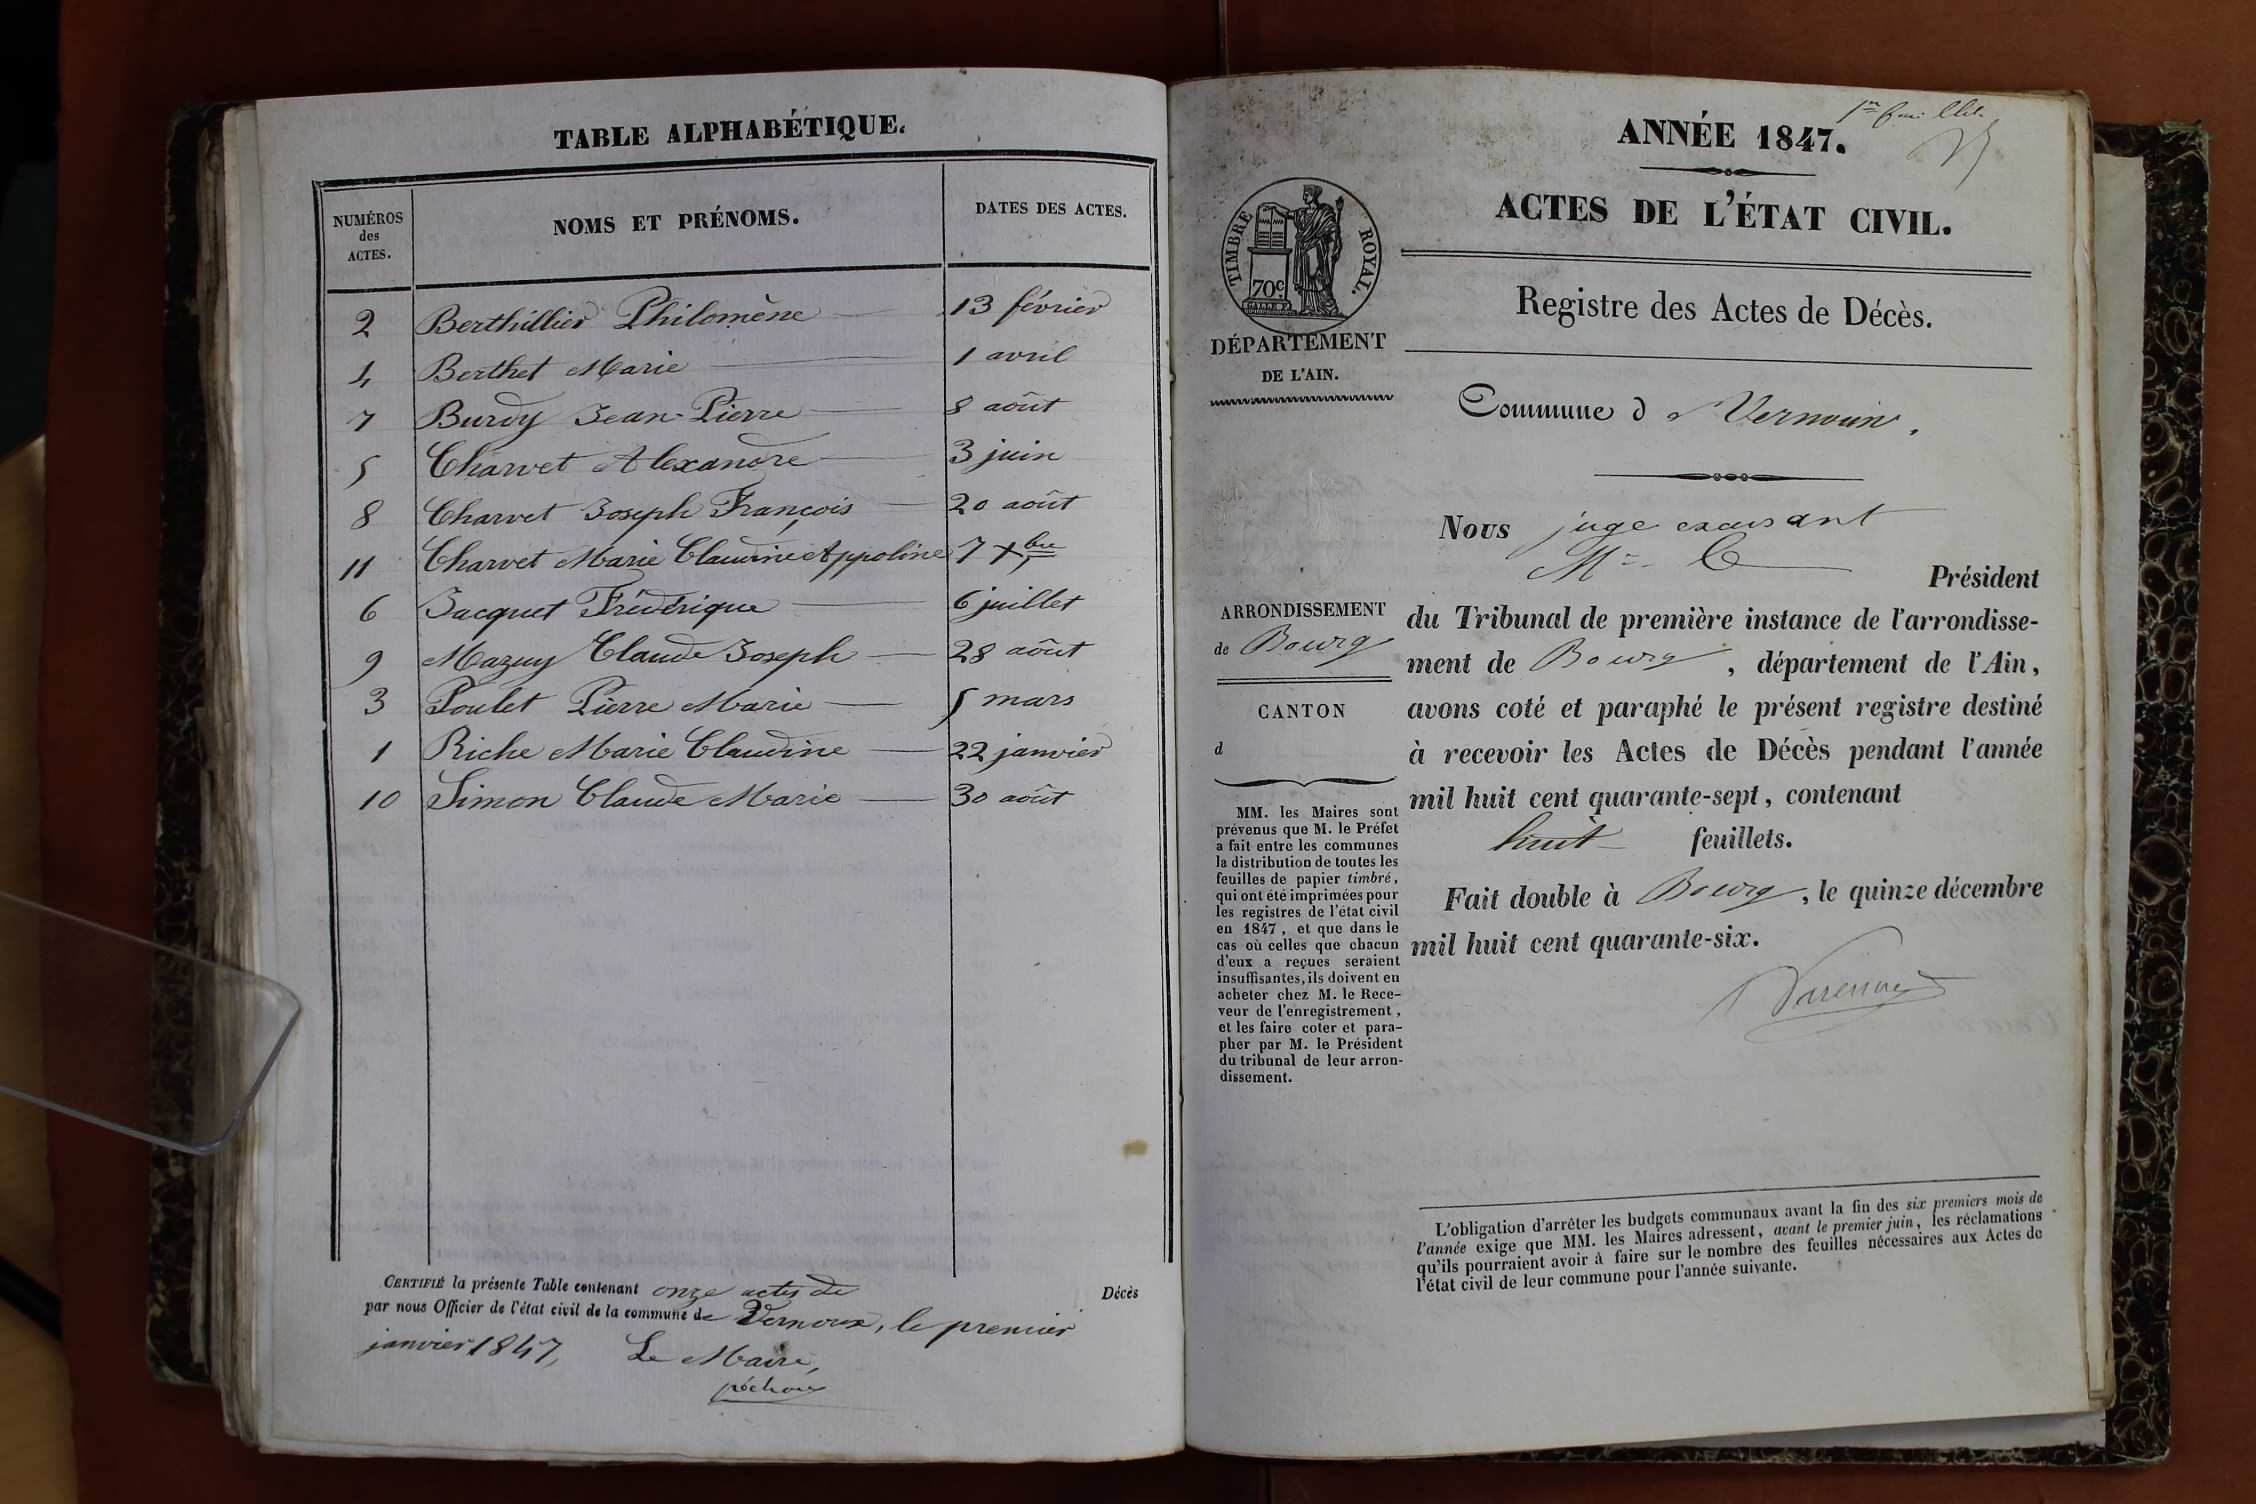 TABLE ALPHABÉTIQUE.
NUMÉROS
des
ACTES.
NOMS ET PRÉNOMS.
DATES DES ACTES.
2 Berthillier Philomène 13 février
4 Berthet Marie 1 avril
7 Burdy Jean-Pierre 8 août
5 Charvet Alexandre 3 juin
8 Charvet Joseph François 20 août
11 Charvet Marie Claudine Appoline 7 Xbre
6 Jacquet Frédérique 6 juillet
9 Mazuy Claude Joseph 28 août
3 Poulet Pierre Marie 5 mars
1 Riche Marie Claudine 22 janvier
10 Simon Claude Marie 30 août
CERTIFIÉ la présente Table contenant onze actes de Décès
par nous Officier de l'état civil de la commune de Vernoux, le premier
janvier 1847, Le Maire,
péchoux
1er feuillet.
ANNÉE 1847.
ACTES DE L'ÉTAT CIVIL.
TIMBRE ROYAL.
70c
DÉPARTEMENT
DE L'AIN.
Registre des Actes de Décès.
Commune d e Vernoux.
ARRONDISSEMENT
de Bourg
CANTON
d
MM. les Maires sont
prévenus que M. le Préfet
a fait entre les communes
la distribution de toutes les
feuilles de papier timbré,
qui ont été imprimées pour
les registres de l'état civil
en 1847, et que dans le
cas où celles que chacun
d'eux a reçues seraient
insuffisantes, ils doivent en
acheter chez M. le Rece-
veur de l'enregistrement,
et les faire coter et para-
pher par M. le Président
du tribunal de leur arron-
dissement.
Nous juge
Président
du Tribunal de première instance de l'arrondisse-
ment de Bourg, département de l'Ain,
avons coté et paraphé le présent registre destiné
à recevoir les Actes de Décès pendant l'année
mil huit cent quarante-sept, contenant
huit feuillets.
Fait double à Bourg, le quinze décembre
mil huit cent quarante-six.
L'obligation d'arrêter les budgets communaux avant la fin des six premiers mois de
l'année exige que MM. les Maires adressent, avant le premier juin, les réclamations
qu'ils pourraient avoir à faire sur le nombre des feuilles nécessaires aux Actes de
l'état civil de leur commune pour l'année suivante.